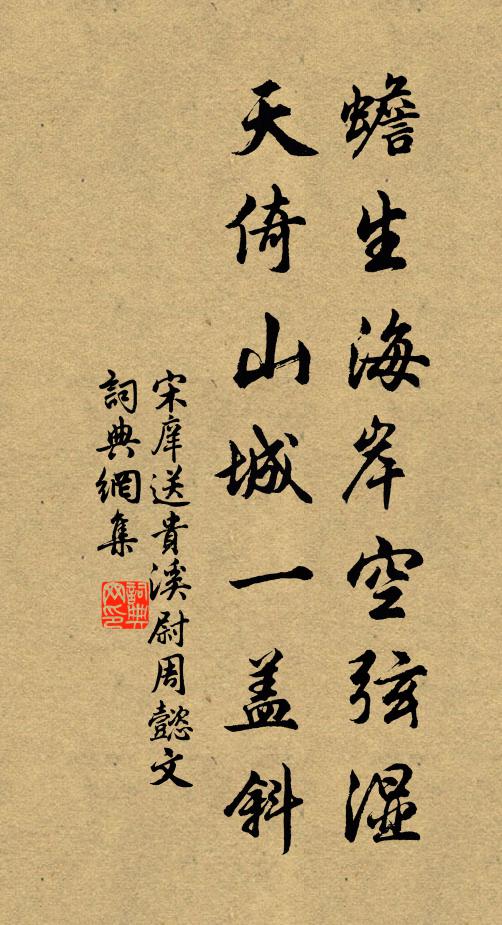 蟾生海岸空弦湿
天倚山城一盖斜
宋庠送貴溪尉周懿文
詞典網集
詞典网印